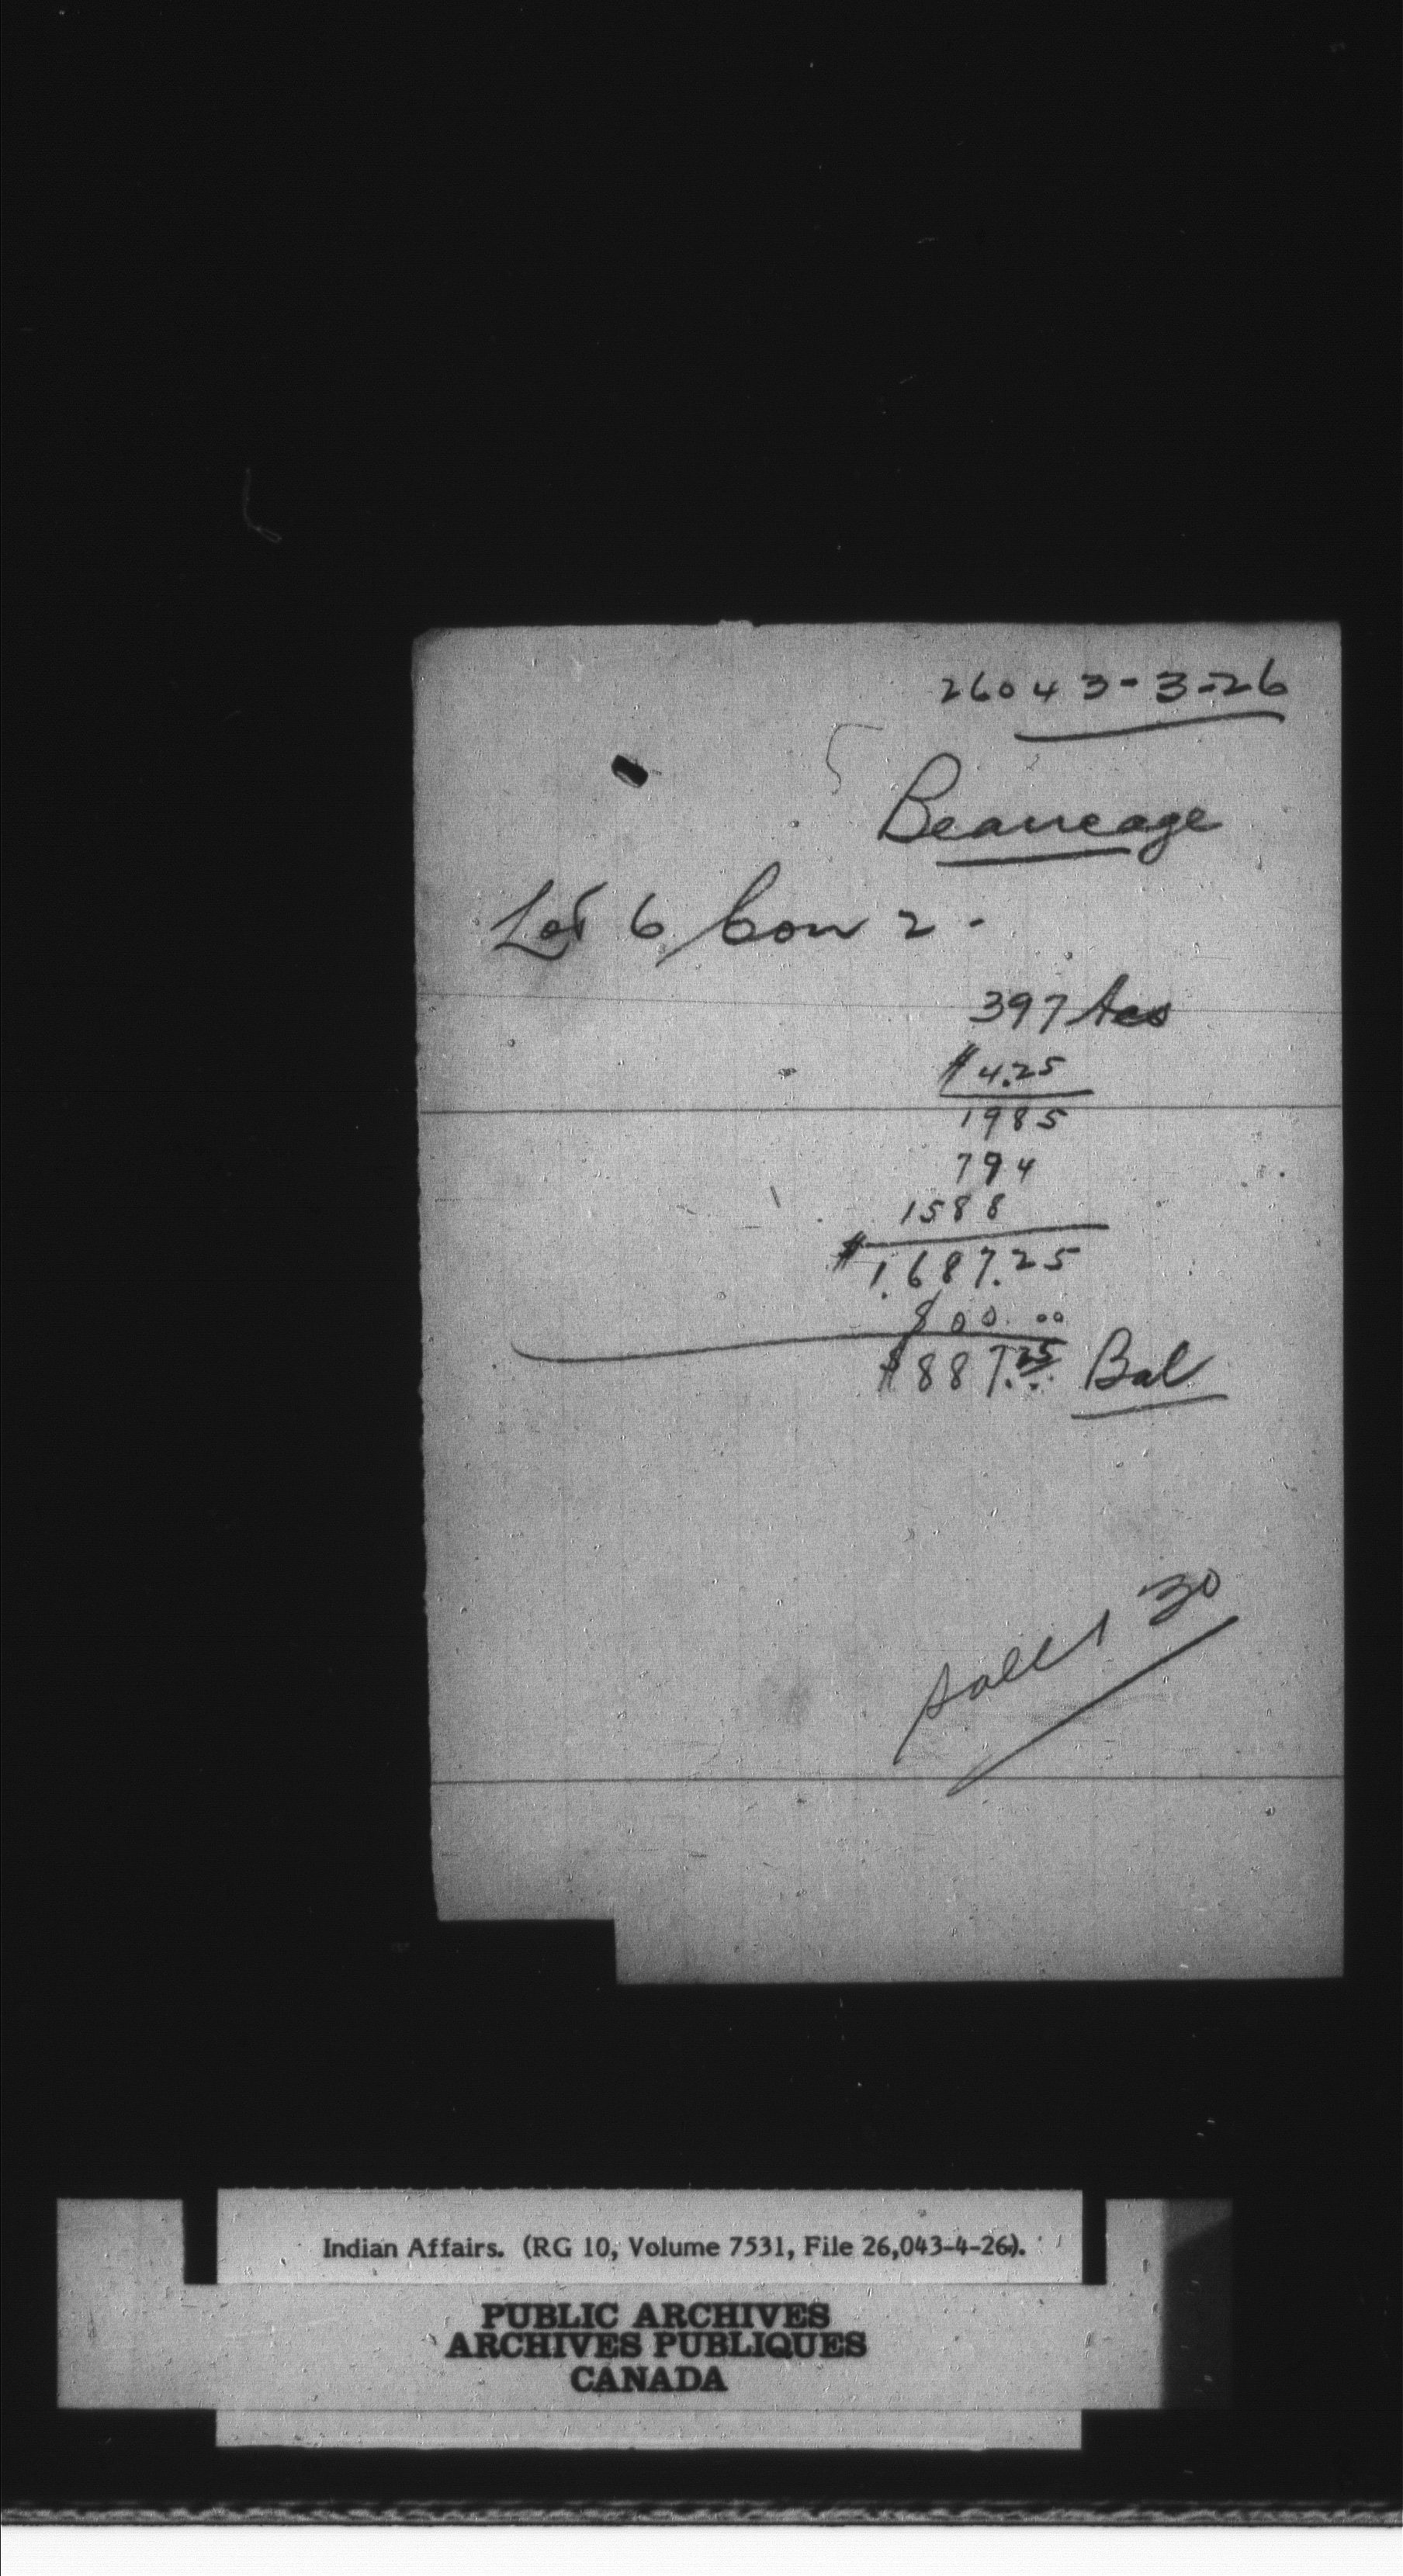 26043-3-26
Beaucage
Lot 6 Con 2 -
397 Acs
$ 4.25
1985
794
1588
$ 1,687.25
800.00
$ 887.25 Bal
30
Indian Affairs. (RG 10, Volume 7531, File 26,043-4-26).
PUBLIC ARCHIVES
ARCHIVES PUBLIQUES
CANADA